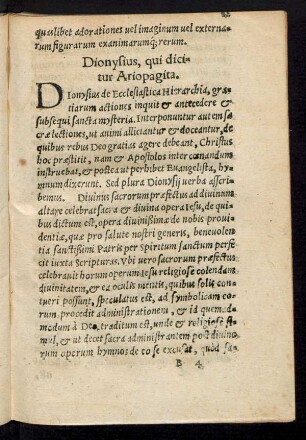 quaslibet adorationes uel imaginum uel externa-
rum figurarum exanimarumq; rerum.
Dionysius, qui dici-
tur Ariopagita.
DIonysius de Ecclesiastica Hierarchia, gra-
tiarum actiones inquit & antecedere &
subsequi sancta mysteria. Interponuntur autem sa-
cræ lectiones, ut animi alliciantur & doceantur, de
quibus rebus Deo gratias agere debeant, Christus
hoc præstitit, nam & Apostolos inter cœnandum
instruebat, & postea ut perhibet Euangelista, hy-
mnum dixerunt. Sed plura Dionysij uerba ascri-
bemus. Diuinus sacrorum præfectus ad diuinum
altare celebrat sacra & diuina opera Iesu, de qui-
bus dictum est, opera diuinissimæ de nobis proui-
dentiæ, quæ pro salute nostri generis, beneuolen-
tia sanctissimi Patris per Spiritum sanctum perfe-
cit iuxta Scripturas. Vbi uero sacrorum præfectus
celebrauit horum operum Iesu religiose colendam
diuinitatem, & ea oculis mentis, quibus solis con-
tueri possunt, speculatus est, ad symbolicam eo-
rum, procedit administrationem, & id quemad-
modum à Deo traditum est, unde & religiose si-
mul, & ut decet sacra administrantem post diuino-
rum operum hymnos de eo se excusat, quòd sa-
B 4